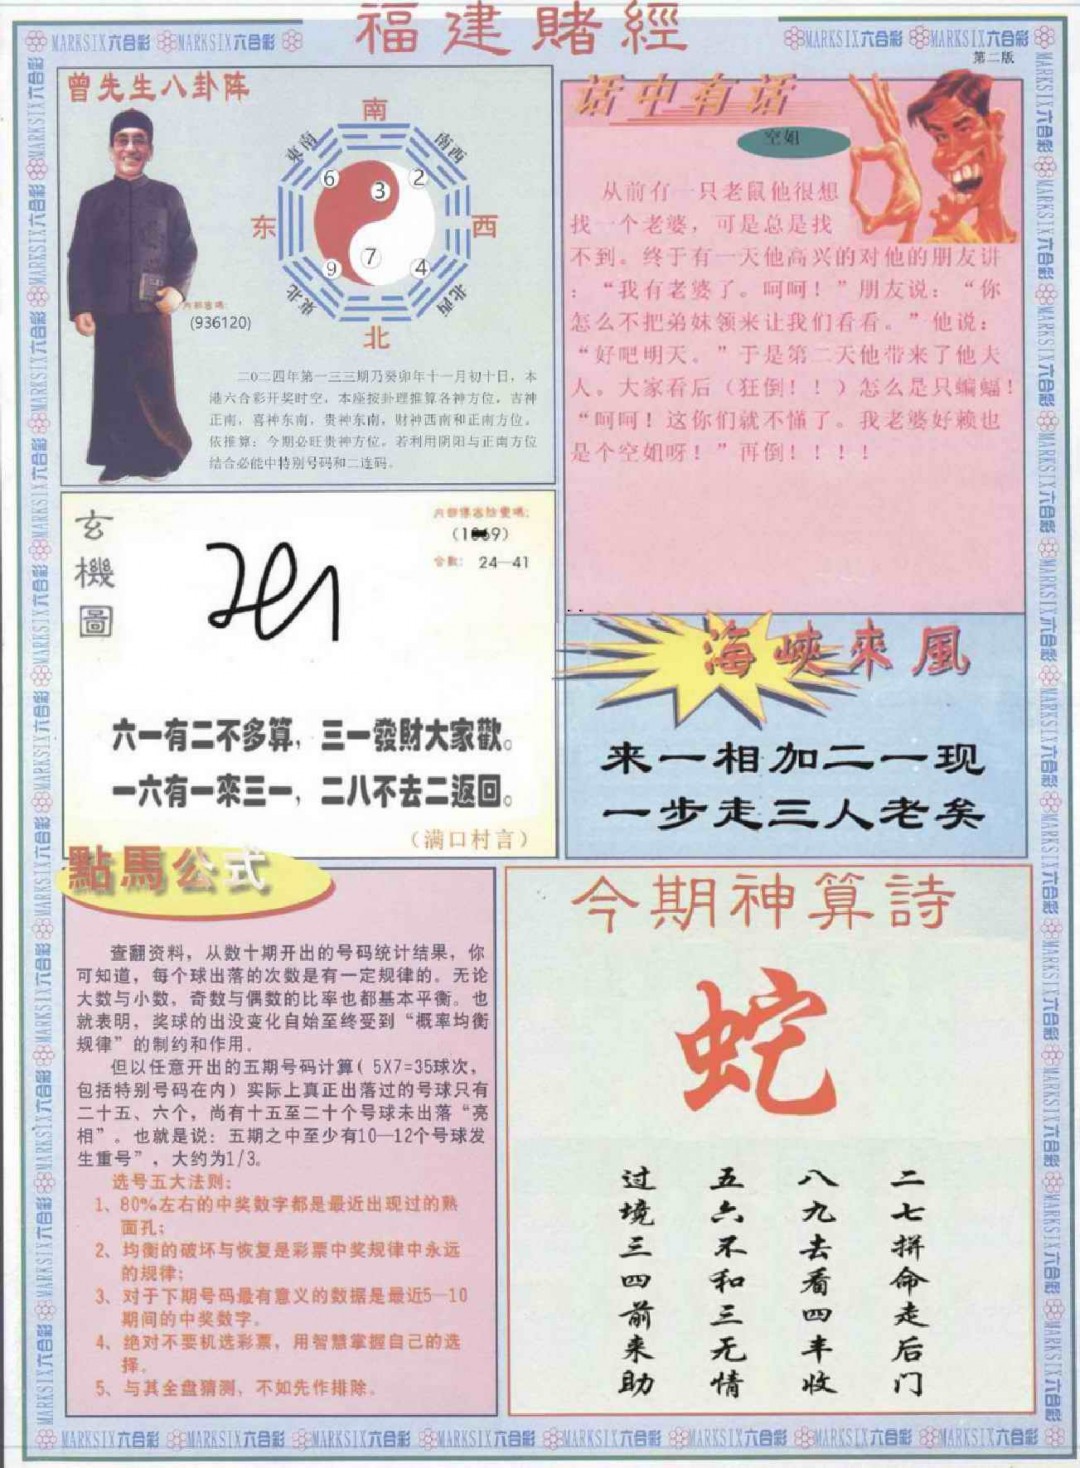 福建賭經
MARKSIX六合彩 MARKSIX六合彩
MARKSIX六合彩 MARKSIX六合彩
第二版
曾先生八卦阵
南
東南
南西
东
西
東北
北西
北
6
3
2
7
9
4
内部密碼:
(936120)
二0二四年第一三三期乃癸卯年十一月初十日，本
港六合彩开奖时空，本座按卦理推算各神方位，吉神
正南，喜神东南，贵神东南，财神西南和正南方位。
依推算：今期必旺贵神方位，若利用阴阳与正南方位
结合必能中特别号码和二连码。
话中有话
空姐
从前有一只老鼠他很想
找一个老婆，可是总是找
不到。终于有一天他高兴的对他的朋友讲
：“我有老婆了。呵呵！”朋友说：“你
怎么不把弟妹领来让我们看看。”他说：
“好吧明天。”于是第二天他带来了他夫
人。大家看后（狂倒！！）怎么是只蝙蝠！
“呵呵！这你们就不懂了。我老婆好赖也
是个空姐呀！”再倒！！！！
玄機圖
合數： 24—41
六一有二不多算，三一發財大家歡。
一六有一來三一，二八不去二返回。
（满口村言）
海峽來風
来一相加二一现
一步走三人老矣
點馬公式
查翻资料，从数十期开出的号码统计结果，你
可知道，每个球出落的次数是有一定规律的。无论
大数与小数，奇数与偶数的比率也都基本平衡。也
就表明，奖球的出没变化自始至终受到“概率均衡
规律”的制约和作用。
但以任意开出的五期号码计算( 5X7=35球次，
包括特别号码在内）实际上真正出落过的号球只有
二十五、六个，尚有十五至二十个号球未出落“亮
相”。也就是说：五期之中至少有10—12个号球发
生重号”，大约为1/3。
选号五大法则:
1、80%左右的中奖数字都是最近出现过的熟
面孔;
2、均衡的破坏与恢复是彩票中奖规律中永远
的规律;
3、对于下期号码最有意义的数据是最近5—10
期间的中奖数字。
4、绝对不要机选彩票，用智慧掌握自己的选
择。
5、与其全盘猜测，不如先作排除。
今期神算詩
蛇
二七拼命走后门
八九去看四丰收
五六不和三无情
过境三四前来助
MARKSIX六合彩 MARKSIX六合彩 MARKSIX六合彩 MARKSIX六合彩 MARKSIX六合彩 MARKSIX六合彩 MARKSIX六合彩 MARKSIX六合彩